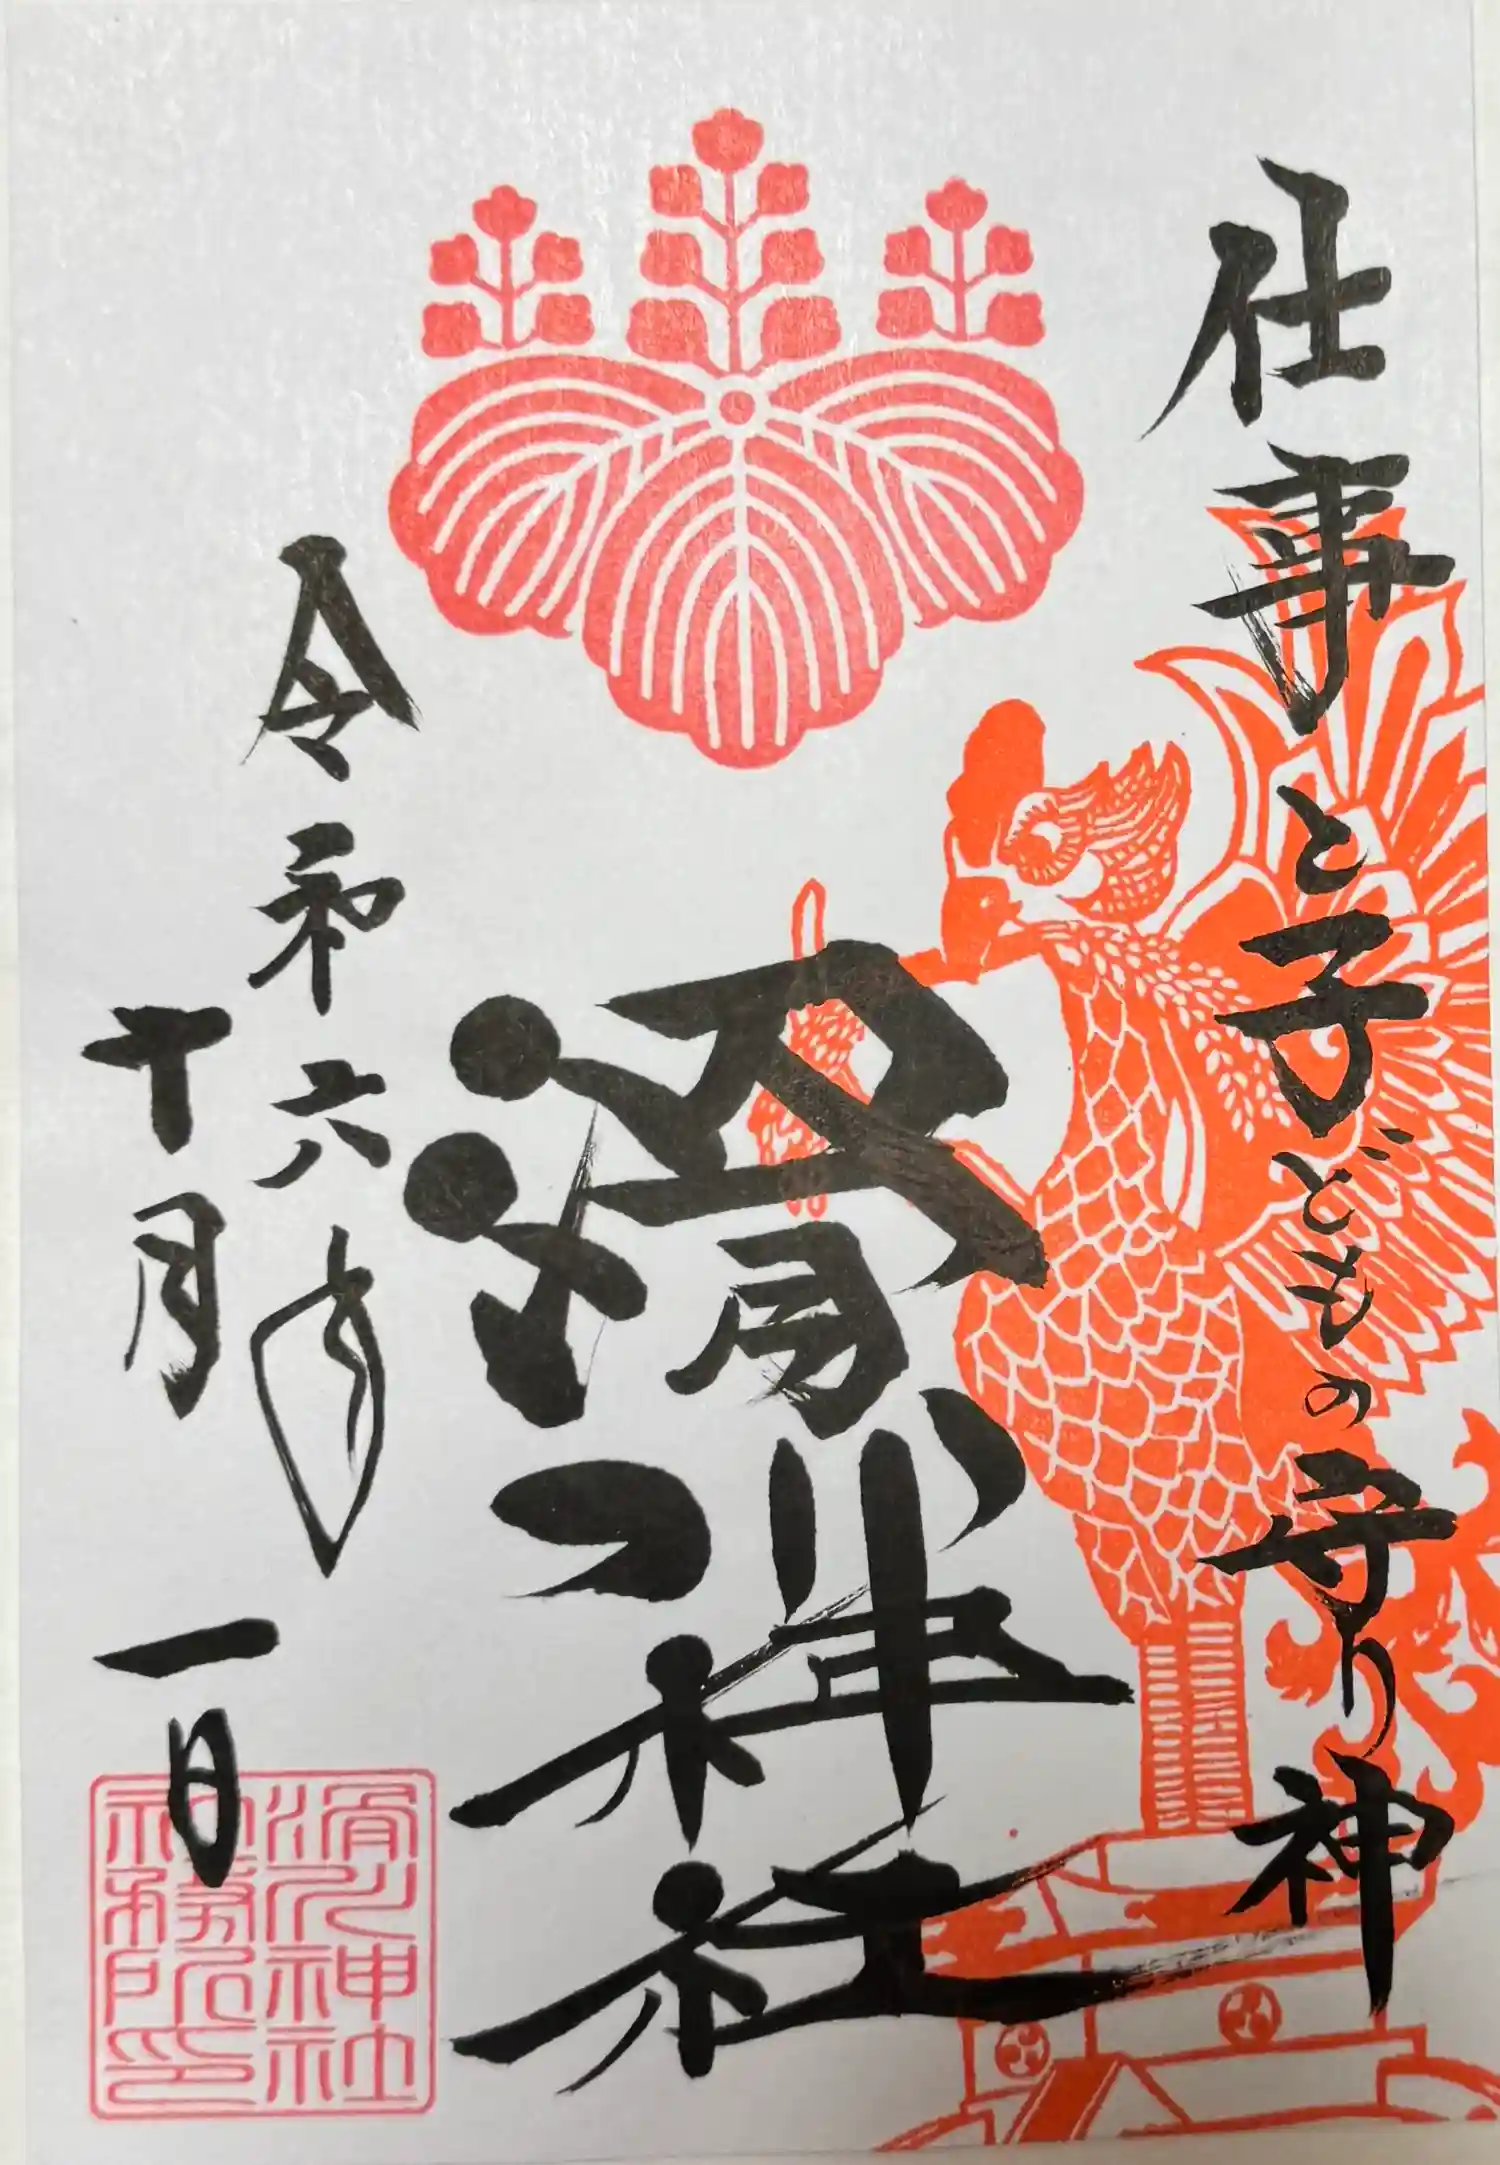 仕事と子どもの守り神
滑川神社
令和六年
十月一日
滑川神社
社務所印